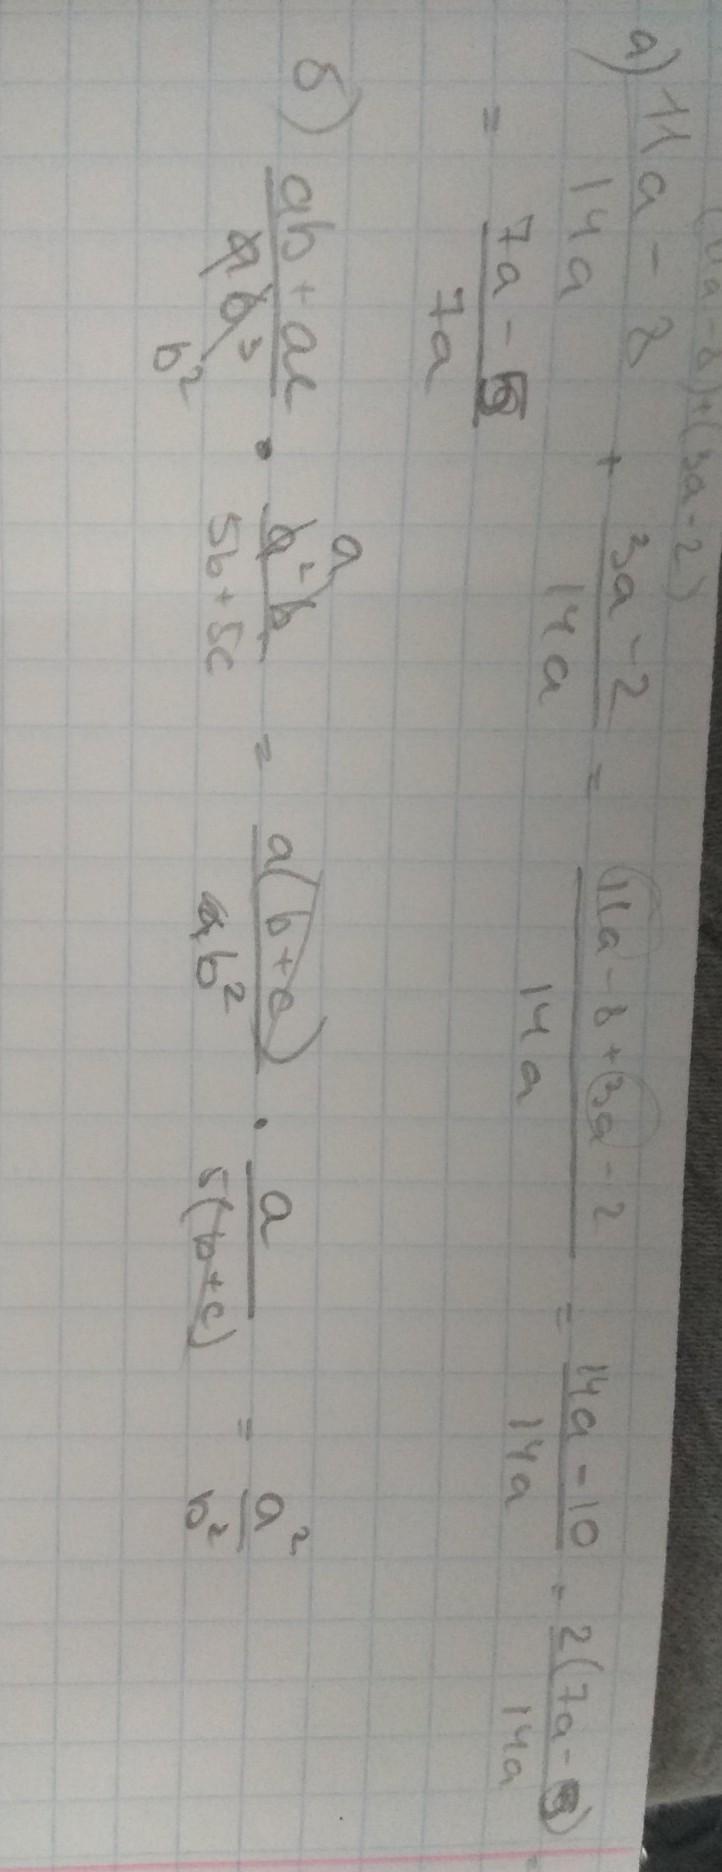 (11a - 8) + (3a - 2)
а) 11a - 8 / 14a + 3a - 2 / 14a = 11a - 8 + 3a - 2 / 14a = 14a - 10 / 14a = 2(7a - 5) / 14a =
= 7a - 5 / 7a
б) ab + ac / ab³ b² · a²b a / 5b + 5c = a(b + c) / ab² · a / 5(b + c) = a² / b²